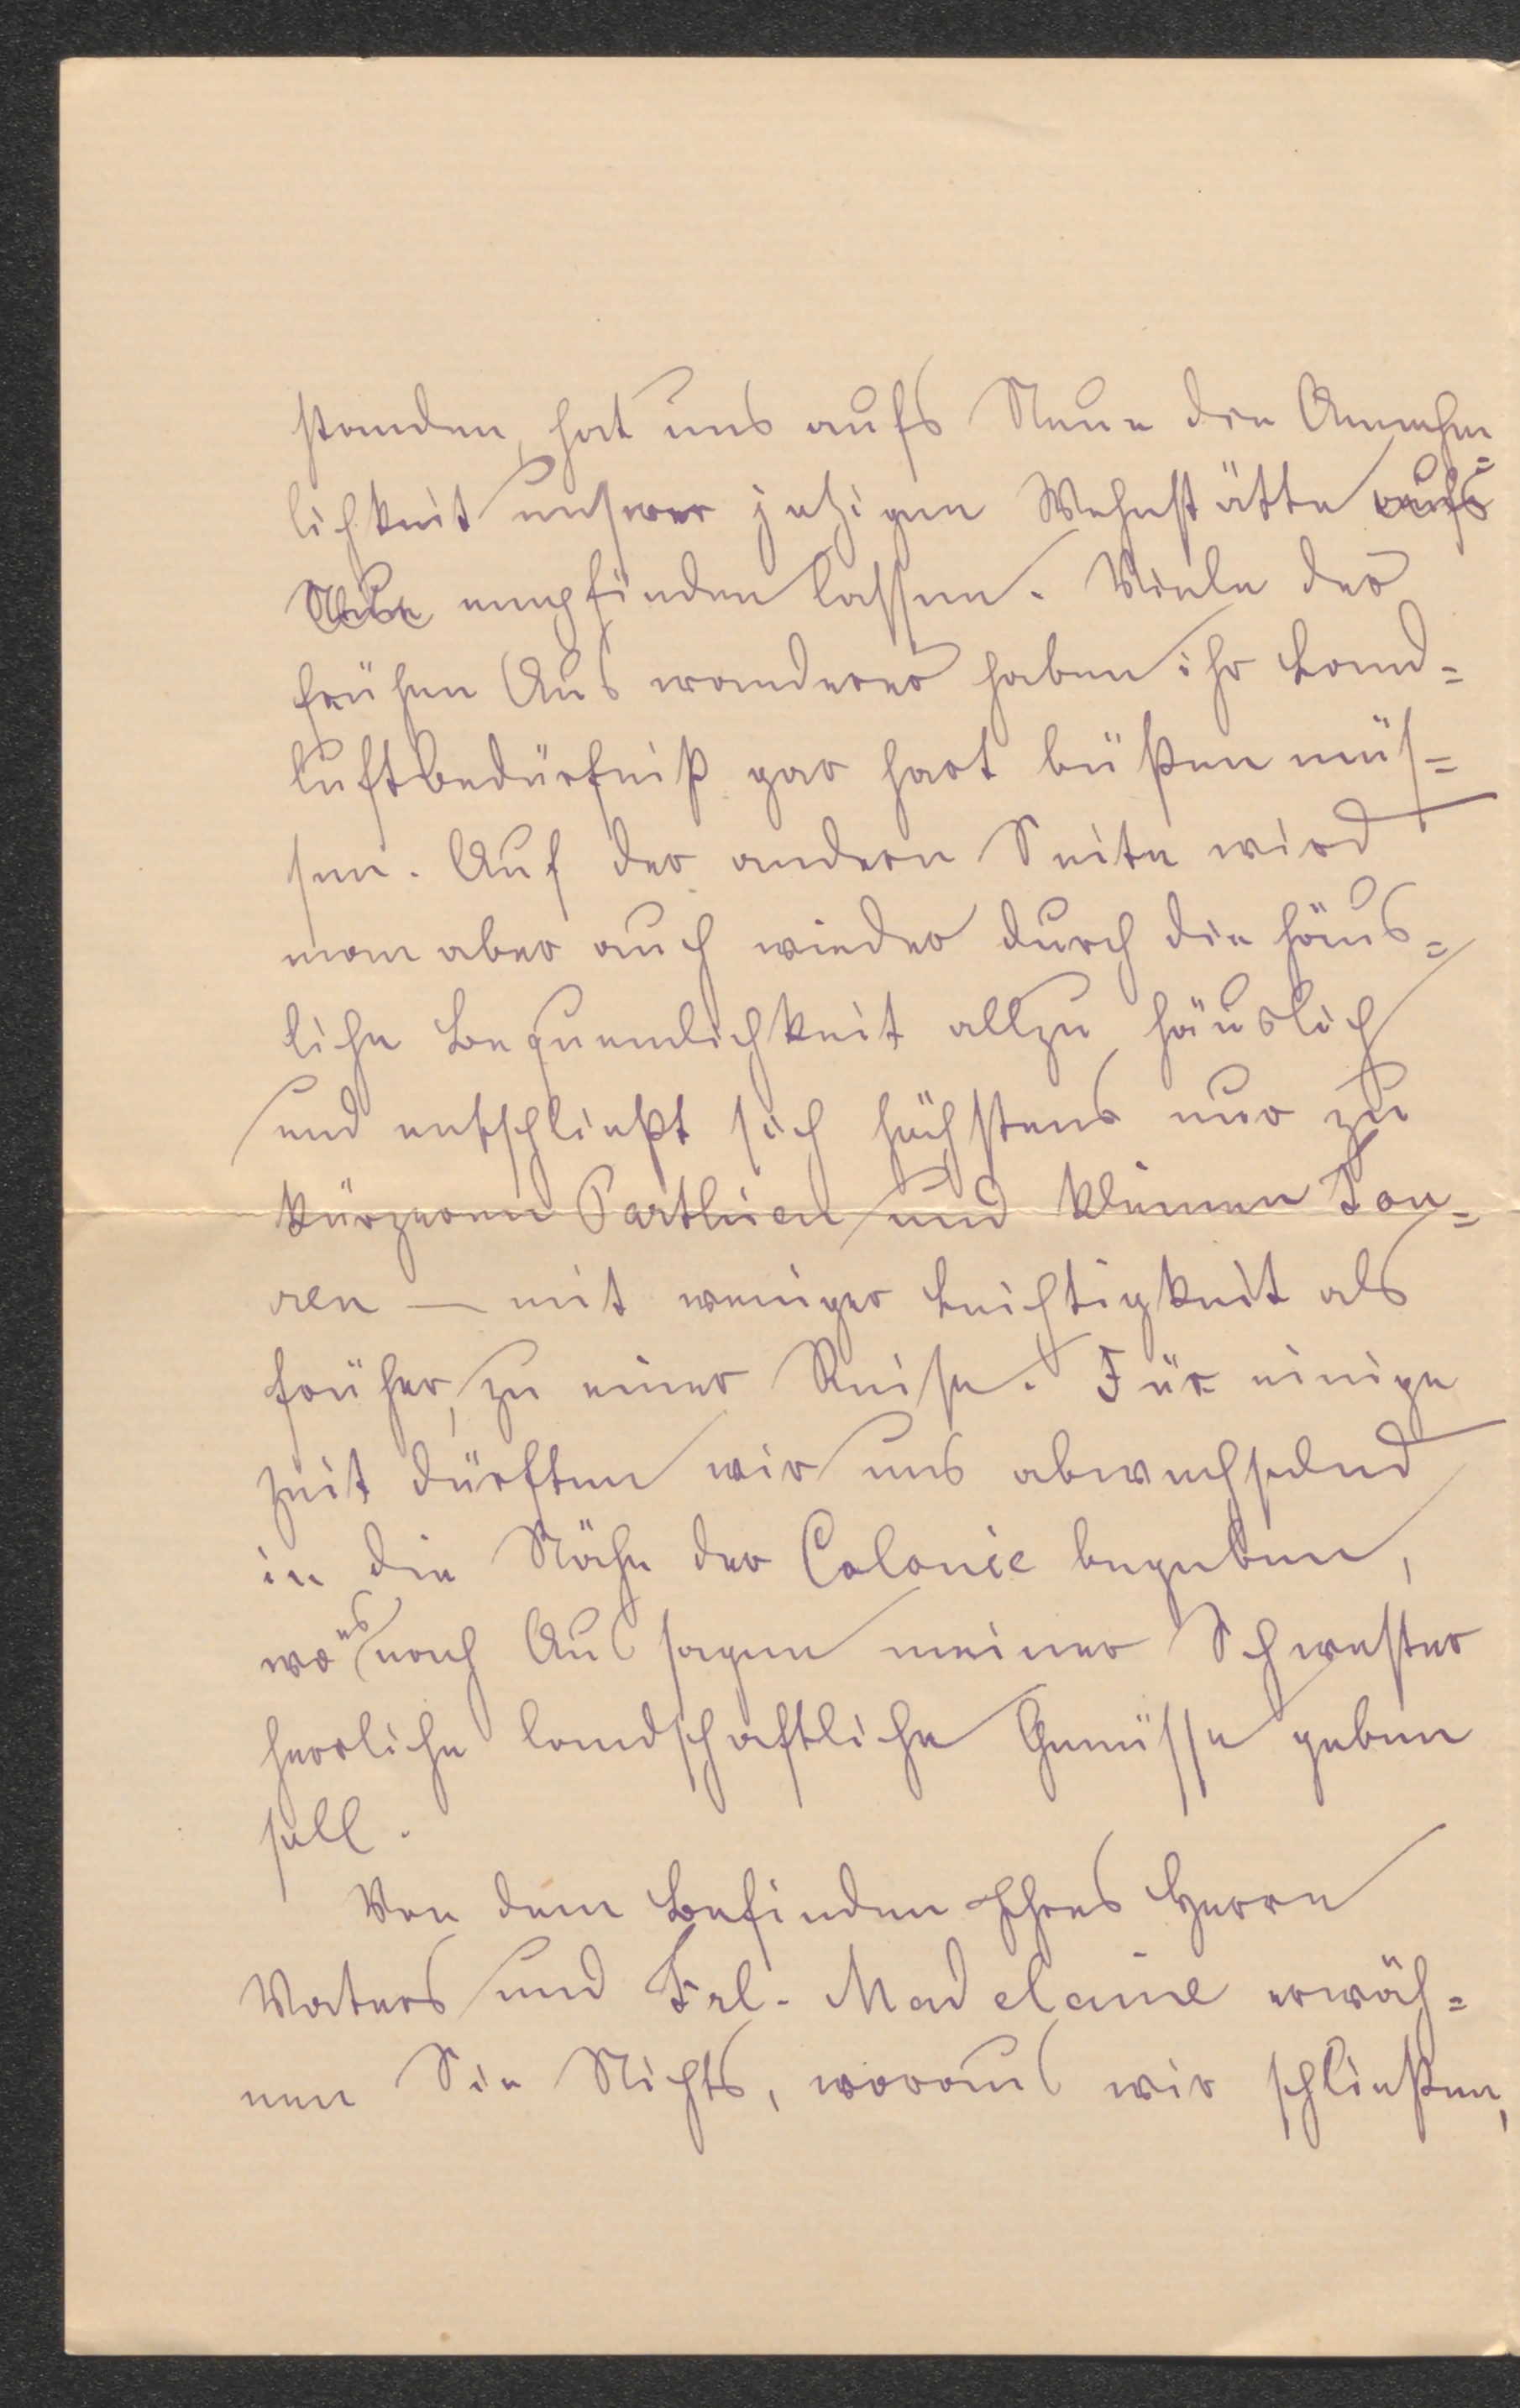 standen, hat uns aufs Neue die Annehm=
lichkeit unserer jetzigen Wohnstätte aufs
Neue empfinden lassen. Viele der
frühen Auswanderer haben ihr Land=
luftbedürfniß gar hart büßen müs=
sen. Auf der andern Seite wird
man aber auch wieder durch die häus=
liche Bequemlichkeit allzu häuslich
und entschließt sich höchstens nur zu
kürzeren Parthien und kleinen Tou=
ren — mit weniger Leichtigkeit als
früher, zu einer Reise. Für einige
Zeit dürften wir uns abwechselnd
in die Nähe der Colonie begeben,
wo es nach Aussagen meiner Schwester
herrliche landschaftliche Genüsse geben
soll.
Von dem Befinden Ihres Herrn
Vaters und Frl. Madelaine erwäh=
nen Sie Nichts, woraus wir schließen,